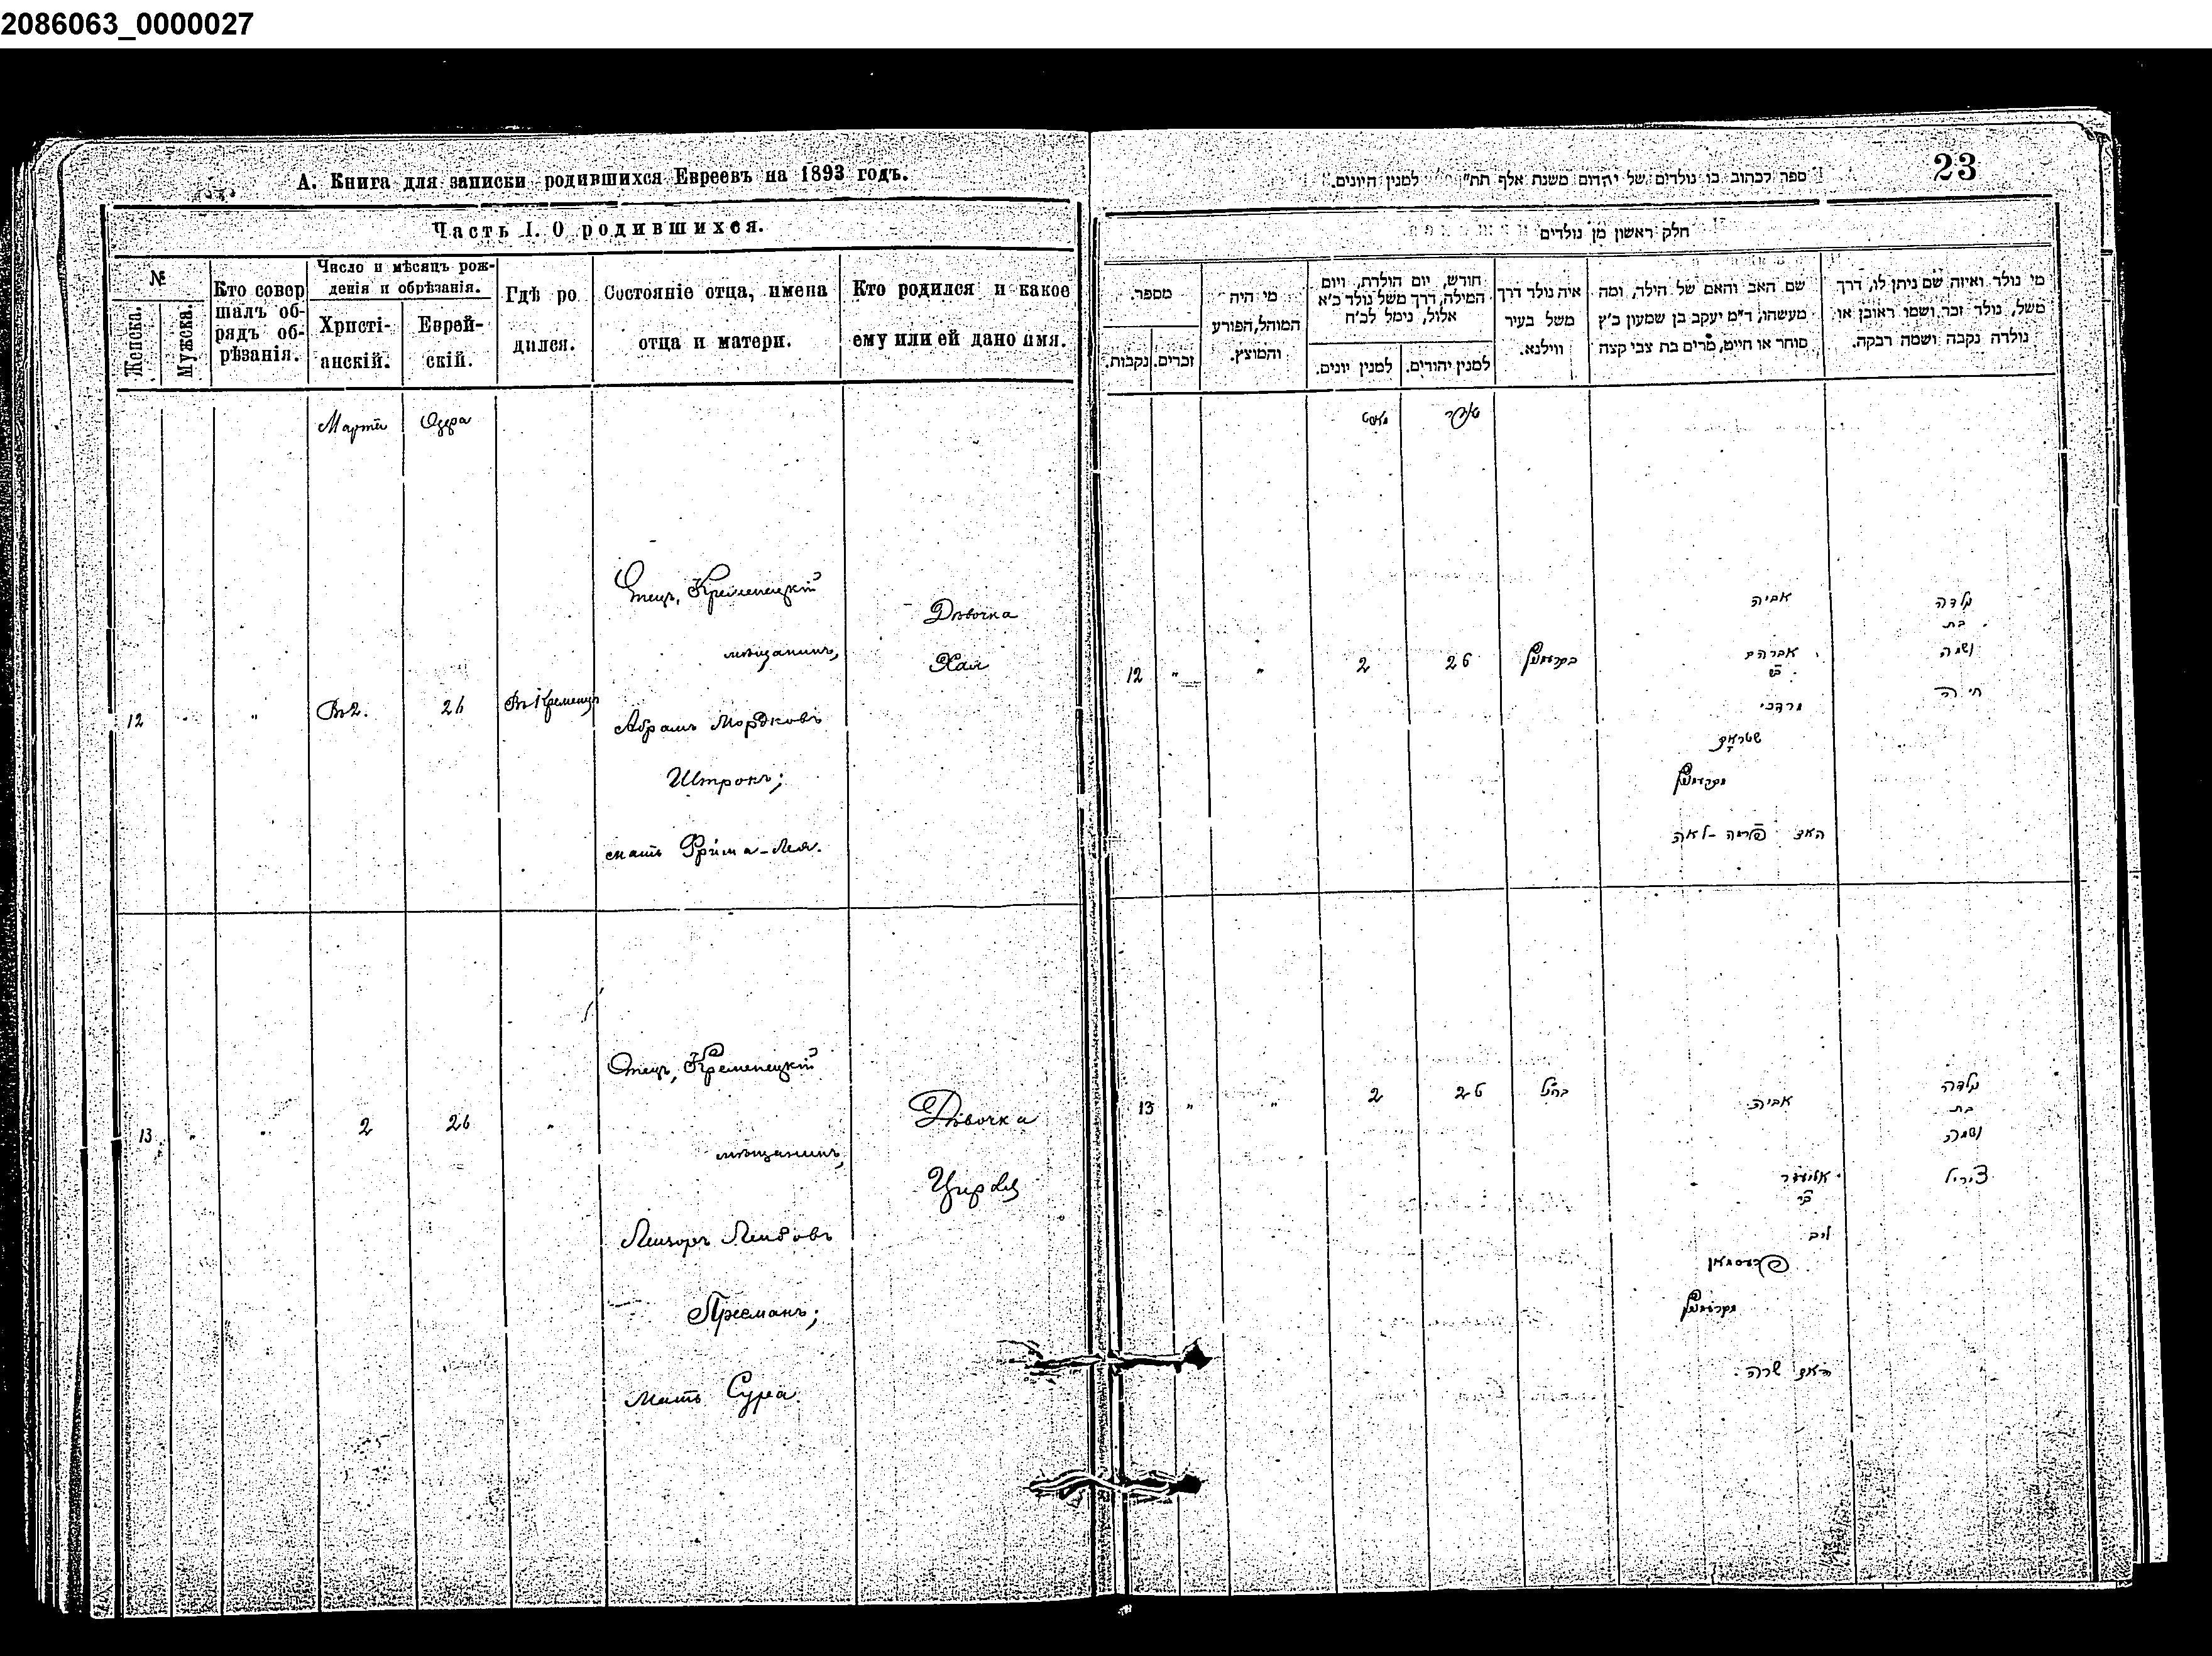 2086063_0000027
А. Книга для записки родившихся Евреевъ на 1893 годъ.
Часть I. О родившихся.
№
Женска.
Мужска.
Кто совер
шалъ об-
рядъ об-
рѣзанія.
Число и мѣсяцъ рож-
денія и обрѣзанія.
Христі-
анскій.
Еврей-
скій.
Гдѣ ро
дился.
Состояніе отца, имена
отца и матери.
Кто родился и какое
ему или ей дано имя.
Мартъ
Одера
12
"
"
Въ 2.
26
Въ Кременцѣ
Отецъ, Кременецкій
мѣщанинъ,
Абрамъ Мордковъ
Штрокъ;
мать Фрима-Лея.
Дѣвочка
Хая
13
"
"
2
26
"
Отецъ, Кременецкій
мѣщанинъ,
Лейзоръ Лейбовъ
Пресманъ;
Мать Сура.
Дѣвочка
23
ספר לכתוב בו נולדים של יהדום משנת אלף תת" למנין היונים.
חלק ראשון מן נולדים
מי נולד ואיזה שם ניתן לו, דרך
משל, נולד זכר ושמו ראובן או
נולדה נקבה ושמה רבקה.
שם האב והאם של הילד, ומה
מעשהו, ד"מ יעקב בן שמעון כ"ץ
סוחר או חייט, מרים בת צבי קצה
איה נולד דרך
משל בעיר
ווילנא.
חודש, יום הולדת, ויום
המילה, דרך משל נולד כ"א
אלול, נימל לכ"ח
למנין יהודים.
למנין יונים.
מי היה
המוהל, הפורע
והמוצץ.
מספר.
זכרים.
נקבות.
אדר
מארט
נולדה
בת
ושמה
חיה
אביה
אברהם
ב"ר
מרדכי
שטראק
האם פרימה-לאה
26
2
"
"
12
נולדה
בת
ושמה
ציריל
אביה
אליעזר
ב"ר
ליב
פרעסמאן
האם שרה
26
2
"
"
13